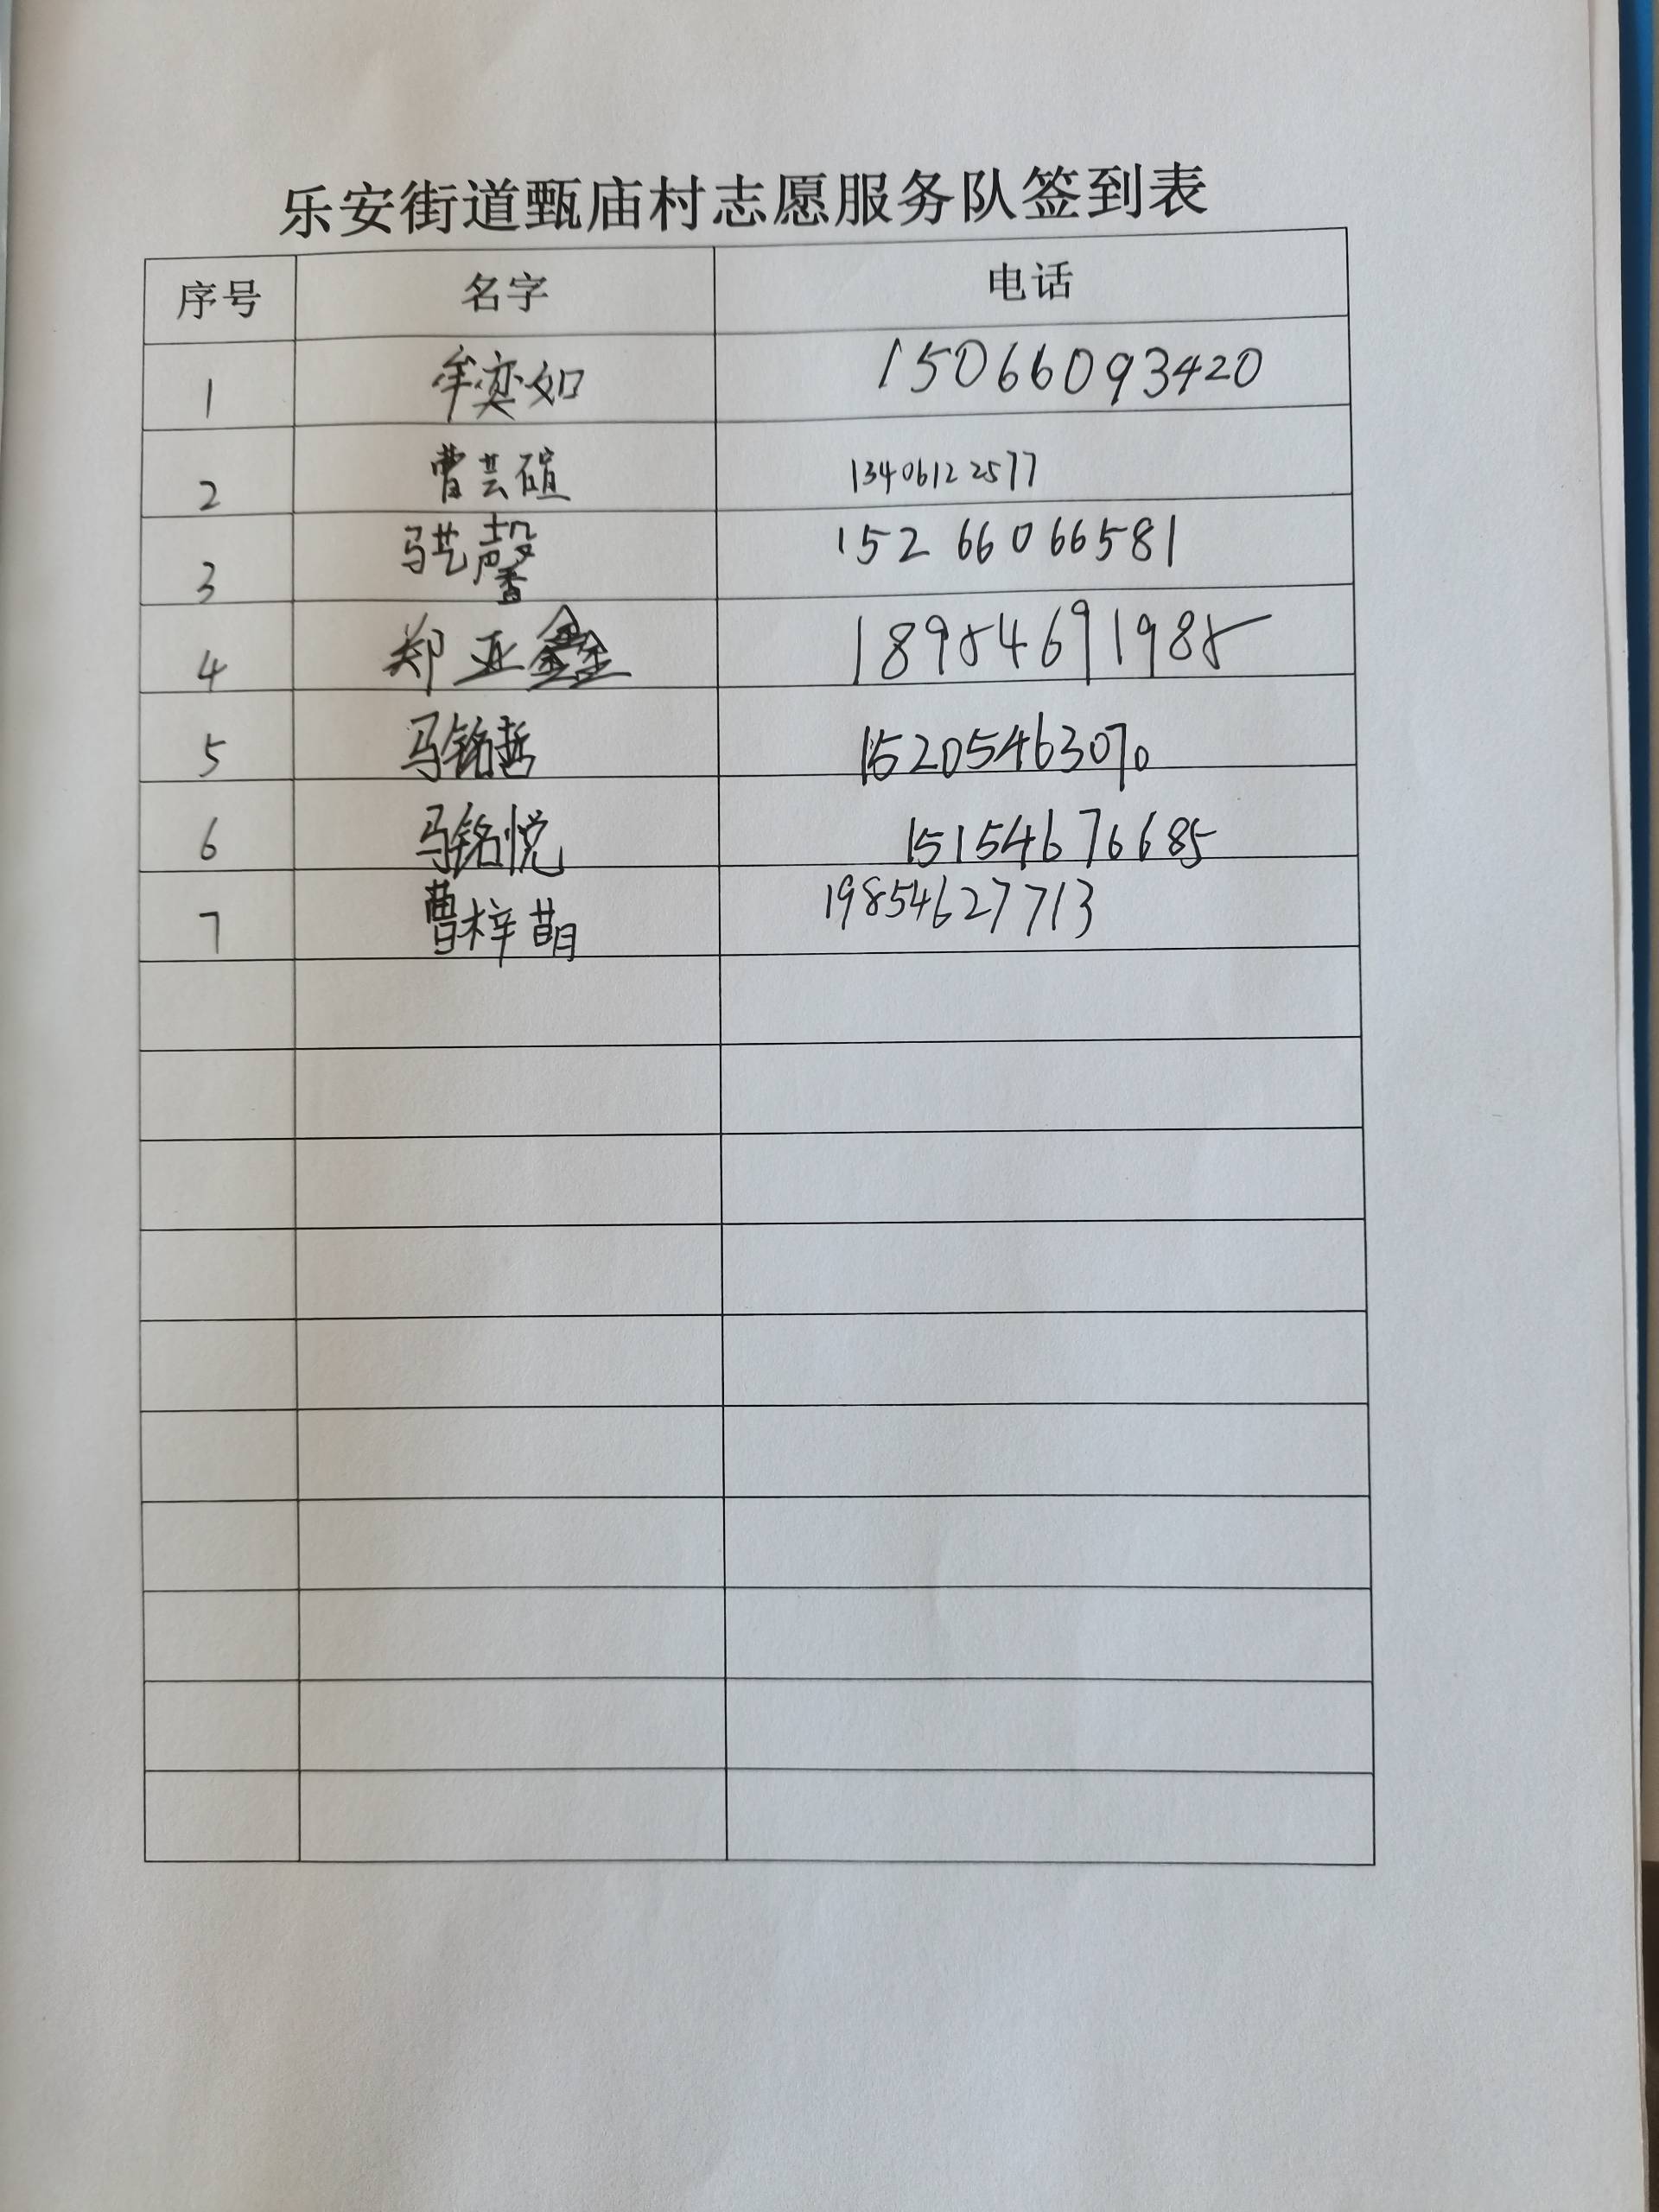 乐安街道甄庙村志愿服务队签到表
序号 名字 电话
1 牟奕如 15066093420
2 曹芸碹 13406122577
3 马艺馨 15266066581
4 郑亚鑫 18954691985
5 马铭哲 15205463070
6 马铭悦 15154676685
7 曹梓萌 19854627713